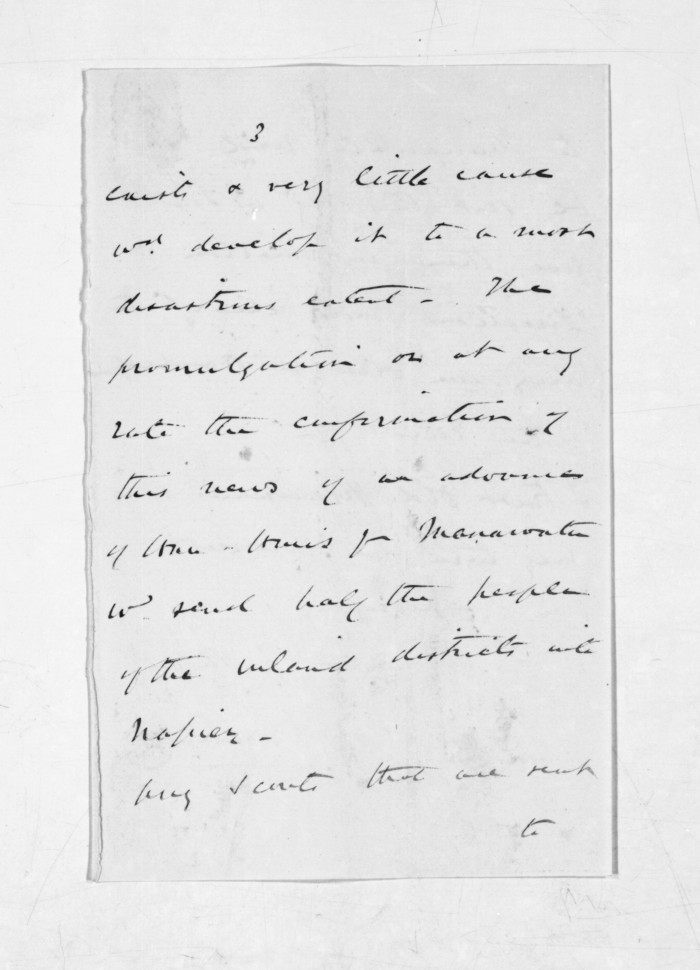 3
exists & very little cause
wd. develop it to a most
disastrous extent - The
promulgation or at any
rate the confirmation of
this news of an advance
of Hau-Haus fr Manawatu
wd. send half the people
of the inland districts into
Napier -
Any scouts that are sent
to